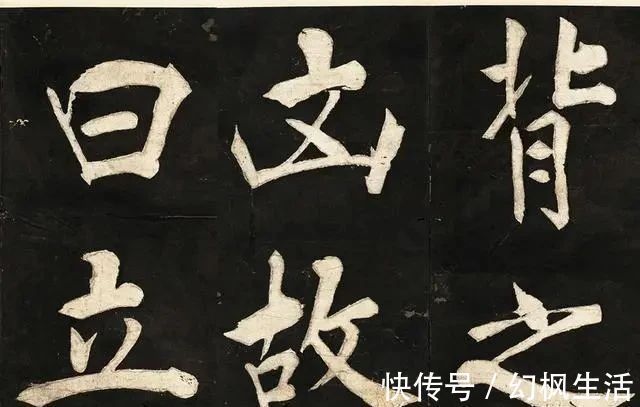 背之
凶故
曰立
快传号 / 幻枫生活